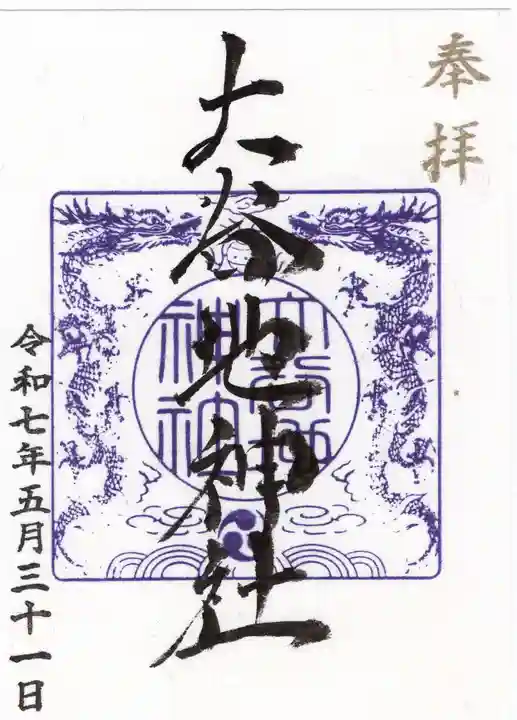 奉拝
大谷地神社
大谷地
神社
令和七年五月三十一日